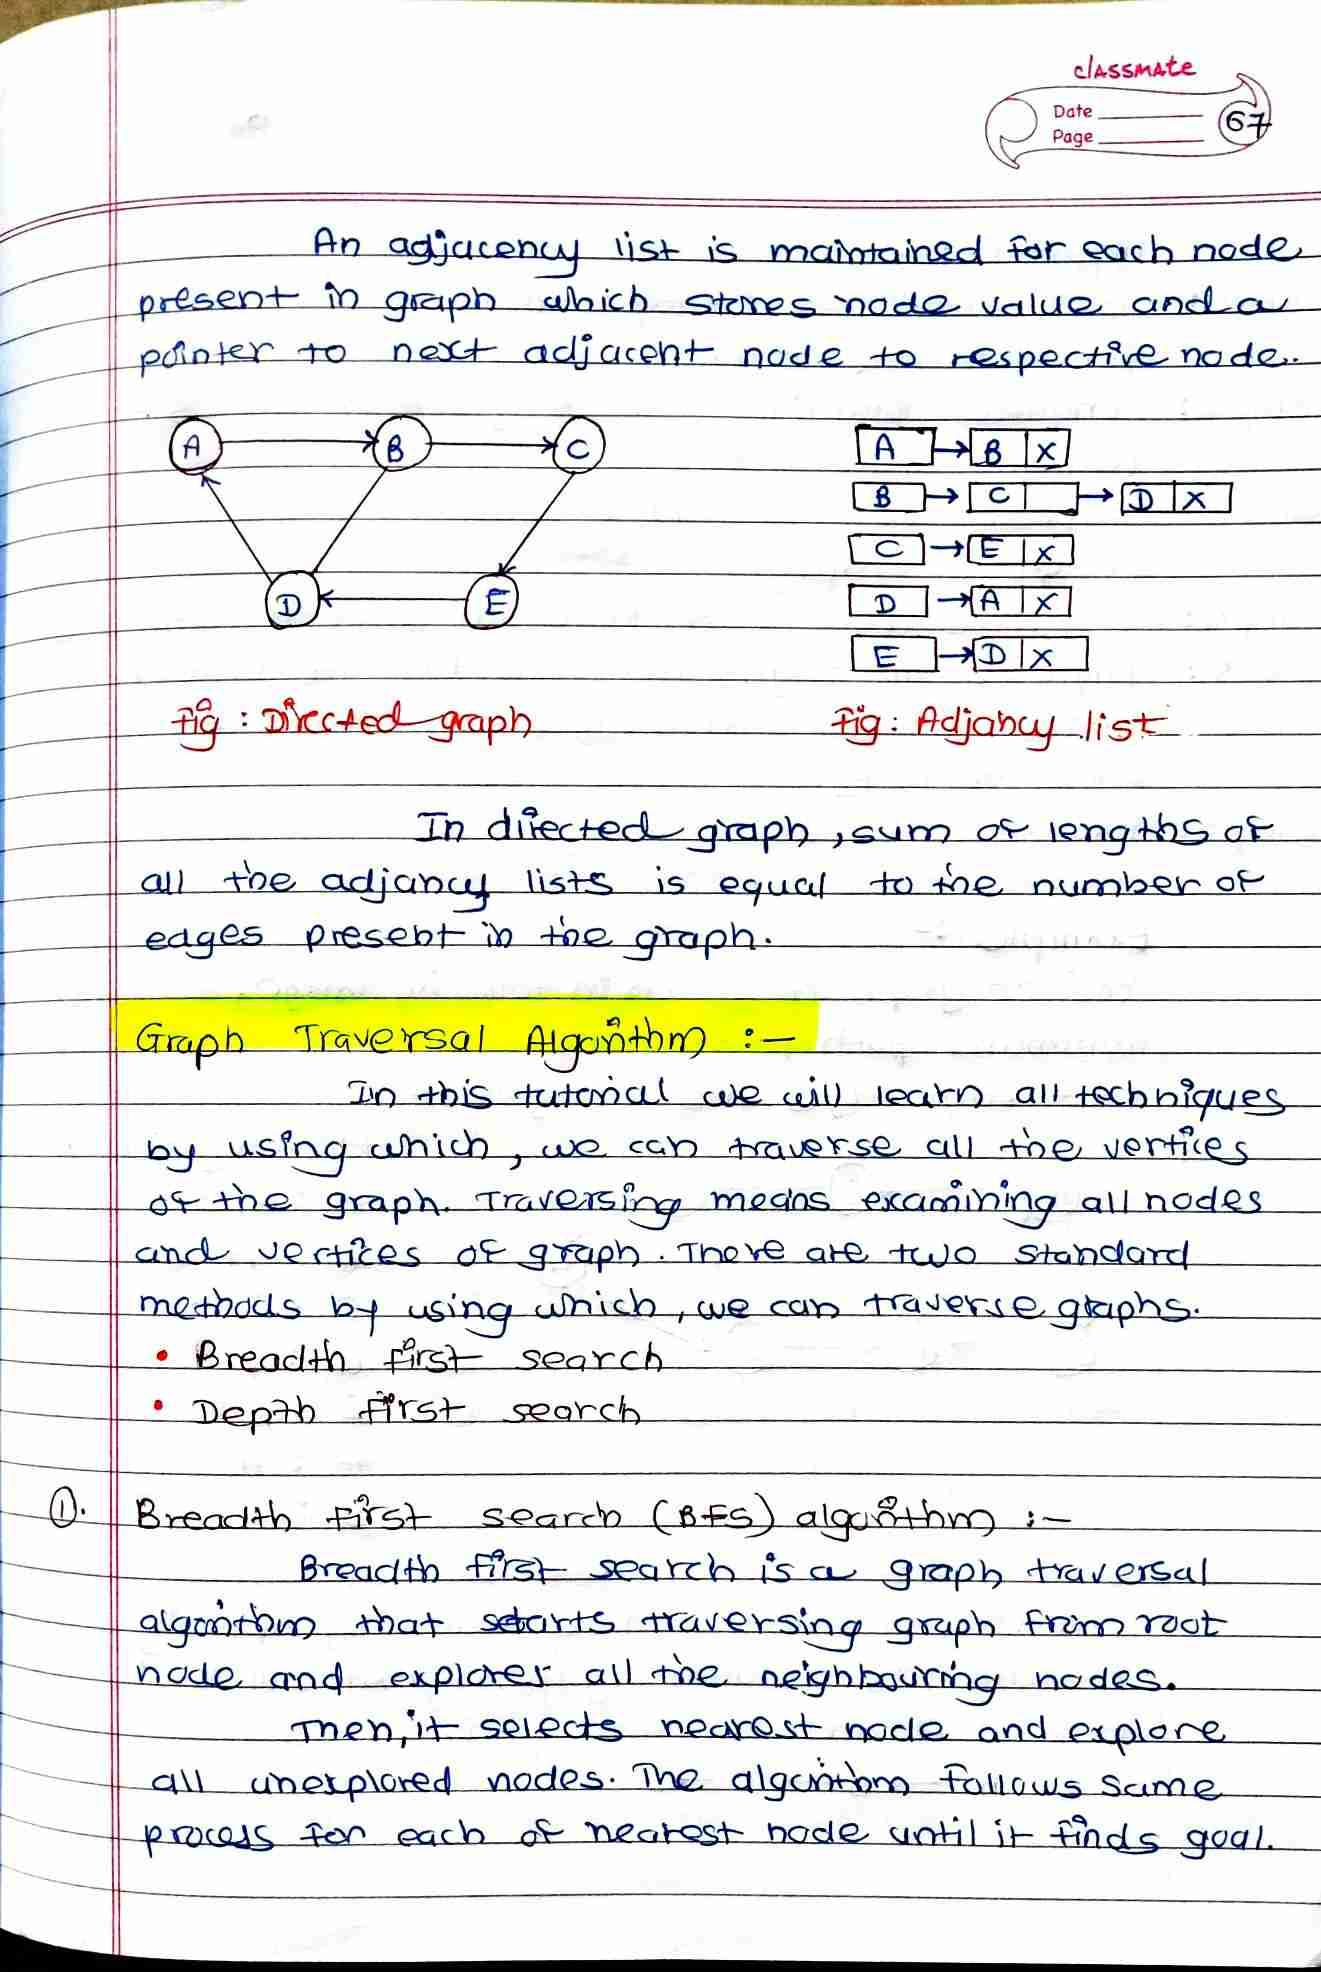 classmate
Date
Page
67
An adjacency list is maintained for each node
present in graph which stores node value and a
pointer to next adjacent node to respective node.
A B C
D E
A B X
B C D X
C E X
D A X
E D X
fig : Directed graph
fig : Adjancy list
In directed graph, sum of lengths of
all the adjancy lists is equal to the number of
edges present in the graph.
Graph Traversal Algorithm :-
In this tutorial we will learn all techniques
by using which, we can traverse all the vertices
of the graph. Traversing means examining all nodes
and vertices of graph. There are two standard
methods by using which, we can traverse graphs.
• Breadth first search
• Depth first search
①. Breadth first search (BFS) algorithm :-
Breadth first search is a graph traversal
algorithm that starts traversing graph from root
node and explores all the neighbouring nodes.
Then, it selects nearest node and explore
all unexplored nodes. The algorithm follows same
process for each of nearest node until it finds goal.